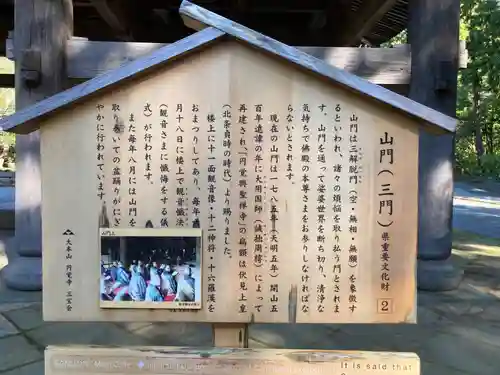 山門(三門)県重要文化財 2
山門は三解脱門(空・無相・無願)を象徴す
るといわれ、諸々の煩悩を取り払う門とされま
す。山門を通って娑婆世界を断ち切り、清浄な
気持ちで佛殿の本尊さまをお参りしなければな
らないとされます。
現在の山門は一七八五年(天明五年)、開山五
百年遠諱の年に大用国師(誠拙周樗)によって
再建され、「円覚興聖禅寺」の扁額は伏見上皇
(北条貞時の時代)より賜りました。
楼上に十一面観音像・十二神将・十六羅漢を
おまつりしてあり、毎年
月十八日に楼上で観音懺法
(観音さまに懺悔をする
式)が行われます。
また毎年八月には山門を
取り巻いての盆踊りがにぎ
やかに行われています。
大本山 円覚寺
三宝会
山門上
It is said that